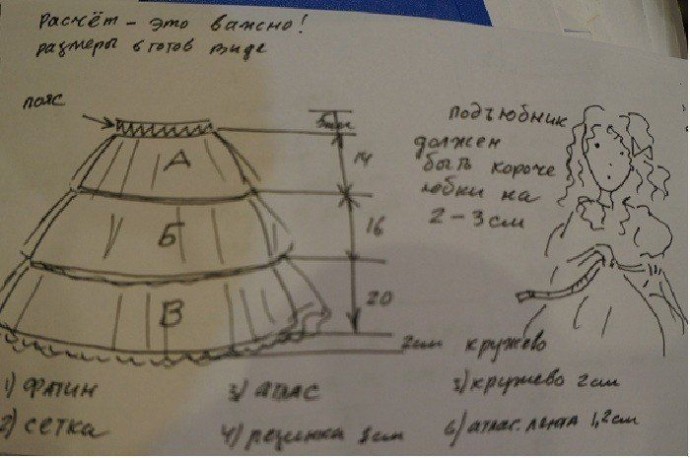 Расчёт - это важно!
размеры в готов виде
пояс
14
16
20
А
Б
В
подъюбник
должен
быть короче
юбки на
2-3 см
2см кружево
1) фатин
2) сетка
3) атлас
4) резинка
5) кружево 2см
6) атлас. лента 1,2см